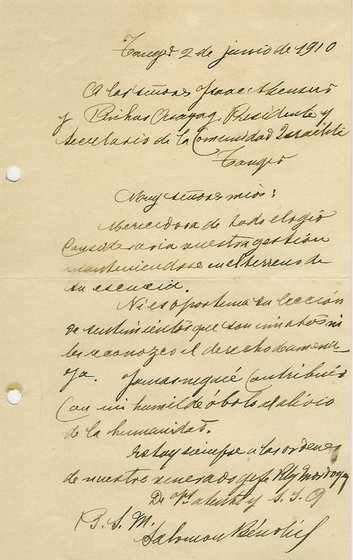 Tanger 2 de junio de 1910
A los señores Isaac Abensur
y Pinhas Asayag, Presidente y
secretario de la Comunidad Israelita
Tanger
Muy señores mios:
Merecedora de todo elogio
consideraria vuestra gestión
manteniendose en el terreno de
su esencia.
Ni es oportuna su lección
de sentimientos que son innatos ni
les reconozco el derecho de amena-
za. Jamas negué contribuir
con mi humilde óbolo al alivio
de la humanidad.
Estoy siempre a las ordenes
de nuestro venerado jefe
S. S. Q
B. S. M.
Salomon Bénoliel